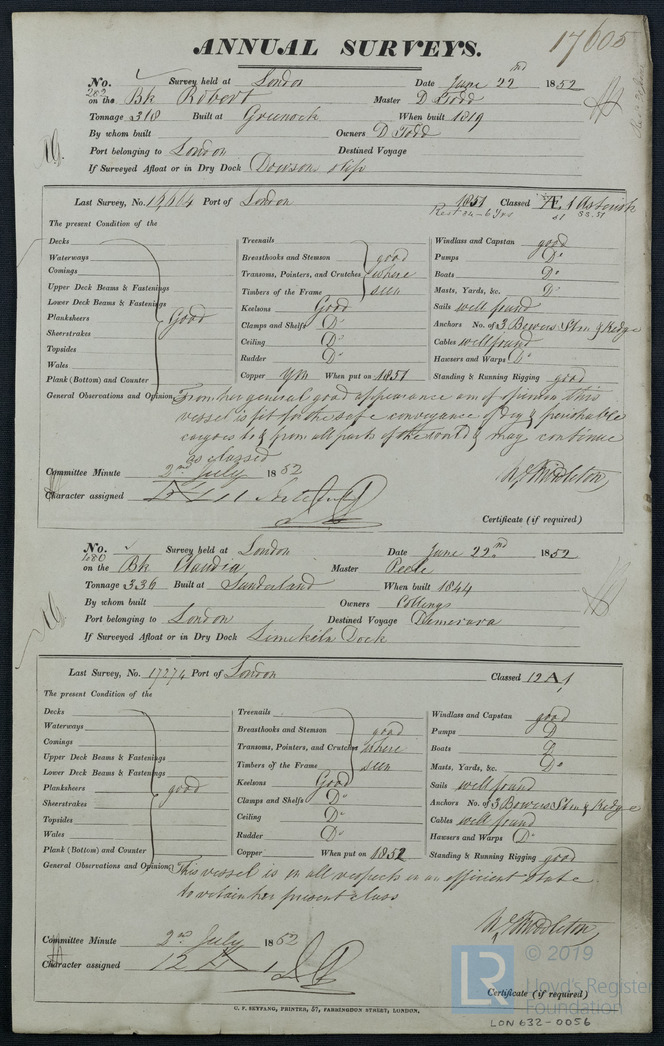 17605
ANNUAL SURVEYS.
No. 282 Survey held at London Date June 22nd 1852
on the Bk Robert Master D Todd
Tonnage 318 Built at Greenock When built 1819
By whom built Owners D Todd
Port belonging to London Destined Voyage
If Surveyed Afloat or in Dry Dock Dowson slip
Last Survey, No. Port of London 1851 Classed Æ 1
The present Condition of the
Decks Treenails Windlass and Capstan good
Waterways Breasthooks and Stemson good Pumps Do
Comings Transoms, Pointers, and Crutches where Boats Do
Upper Deck Beams & Fastenings Timbers of the Frame seen Masts, Yards, &c. Do
Lower Deck Beams & Fastenings Keelsons Good Sails well found
Planksheers Good Clamps and Shelfs Do Anchors No. of 3 Bowers Strm & Kedge
Sheerstrakes Ceiling Do Cables well found
Topsides Rudder Do Hawsers and Warps Do
Wales Copper When put on 1851 Standing & Running Rigging good
Plank (Bottom) and Counter
General Observations and Opinion From her general good appearance am of opinion this
vessel is fit for the safe conveyance of Dry & perishable
cargoes to & from all parts of the world & may continue
as classed
Committee Minute 2nd July 1852 Wm Middleton
Character assigned
Certificate (if required)
No. 1080 Survey held at London Date June 22nd 1852
on the Bk Claudia Master Peele
Tonnage 336 Built at Sunderland When built 1844
By whom built Owners Collings
Port belonging to London Destined Voyage Demerara
If Surveyed Afloat or in Dry Dock Limekiln Dock
Last Survey, No. 17274 Port of London Classed 12 A 1
The present Condition of the
Decks Treenails Windlass and Capstan good
Waterways Breasthooks and Stemson good Pumps D
Comings Transoms, Pointers, and Crutches where Boats D
Upper Deck Beams & Fastenings Timbers of the Frame seen Masts, Yards, &c. Do
Lower Deck Beams & Fastenings Keelsons Good Sails well found
Planksheers good Clamps and Shelfs Do Anchors No. of 3 Bowers Strm & Kedge
Sheerstrakes Ceiling Do Cables well found
Topsides Rudder Do Hawsers and Warps Do
Wales Copper When put on 1852 Standing & Running Rigging good
Plank (Bottom) and Counter
General Observations and Opinion This vessel is in all respects in an efficient state
to retain her present class
Wm Middleton
Committee Minute 2nd July 1852
Character assigned 12 A 1
Certificate (if required)
C. F. SEYFANG, PRINTER, 57, FARRINGDON STREET, LONDON.
LR © 2019
Lloyd's Register
Foundation
LON 632-0056